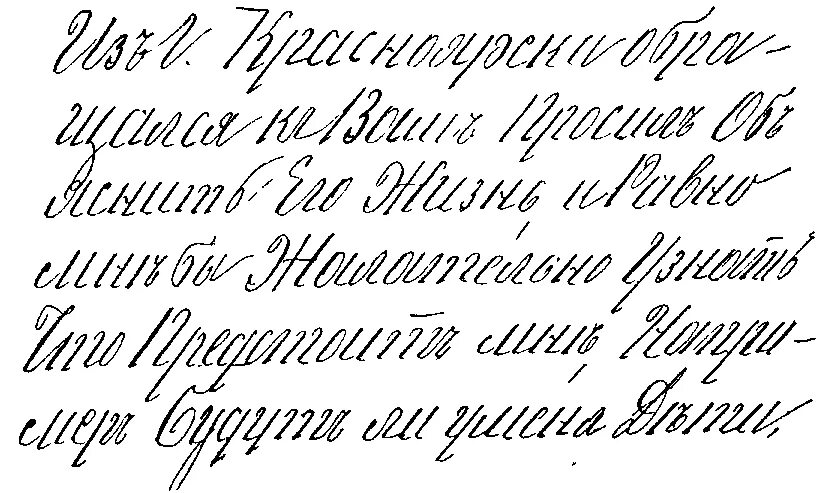 Изъ г. Красноярска обра-
щался къ Вамъ Просилъ Объ
Яснить Его Жизнь, и Равно
мнѣ бы Жалательно Узнать
Что Предстоитъ мнѣ, Напри-
меръ будутъ ли у меня Дѣти,